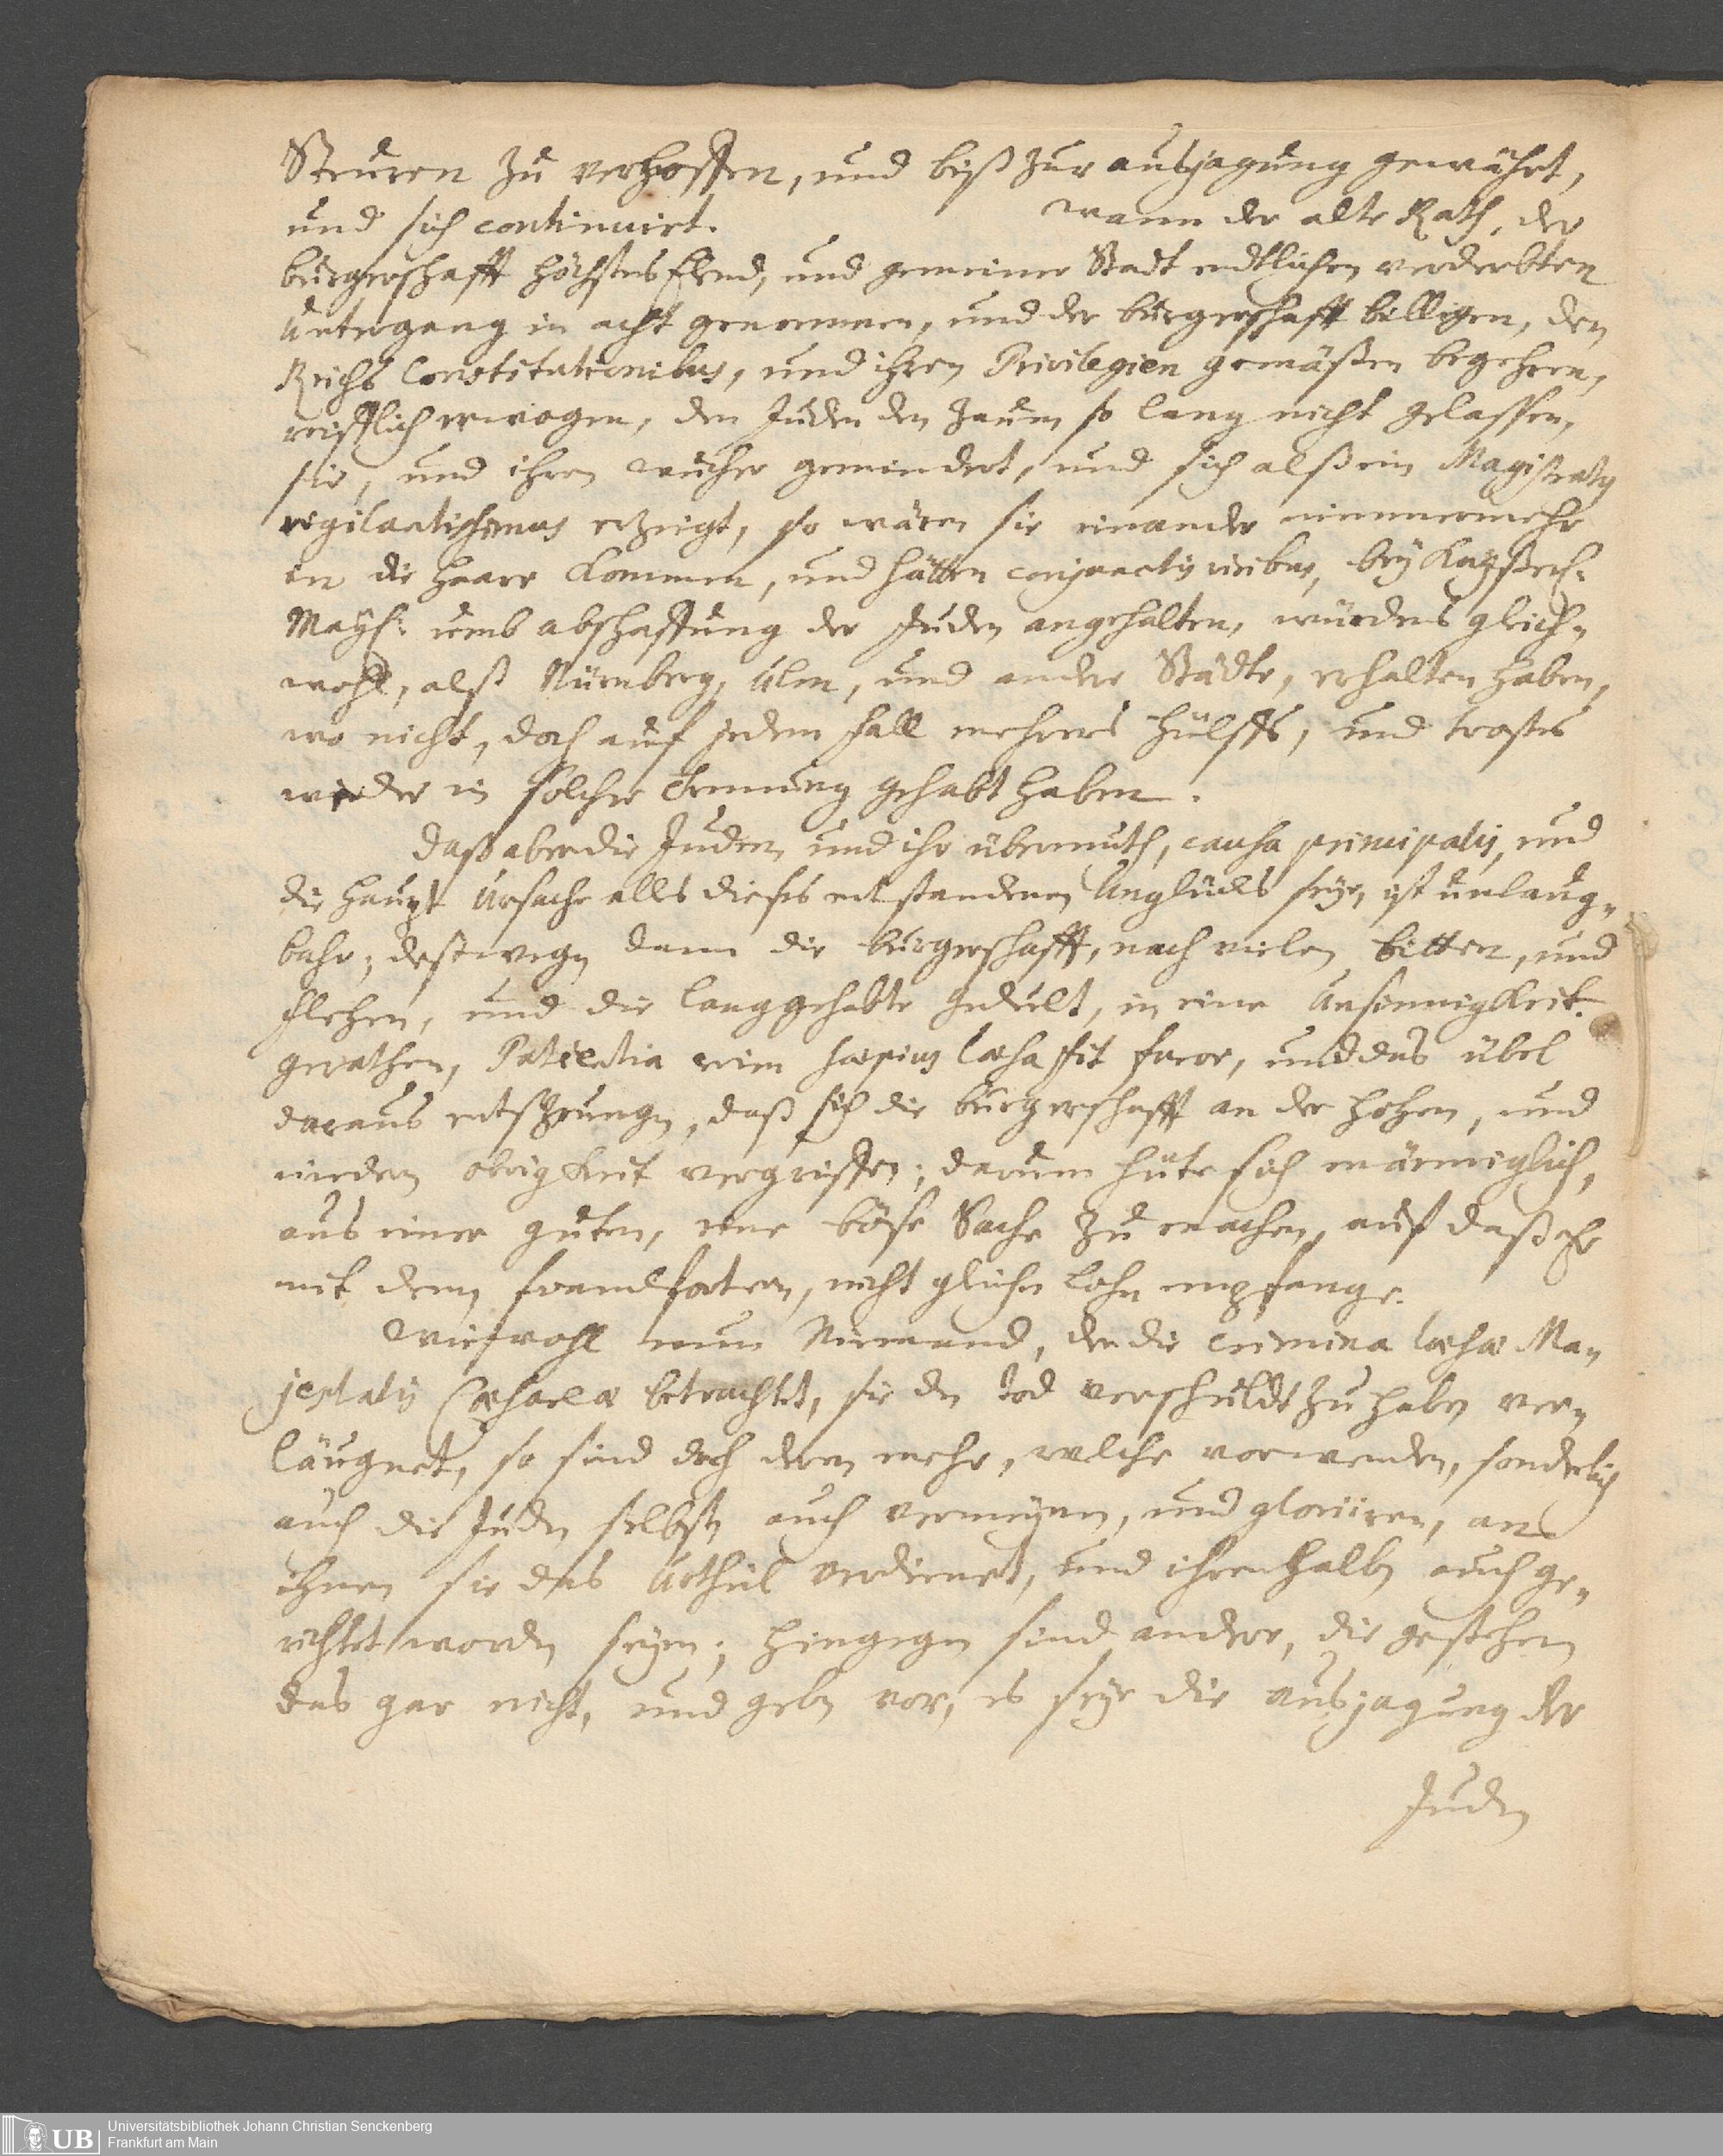 Steuren zu verhoffen, und biß zur ausjagung gewährt,
und sich continuirt. wann der alte Rath, der
bürgerschafft höchstes Elend, und gemeiner Stadt endtlichen verderbten
Untergang in acht genommen, und der bürgerschafft billigen, den
Reichs Constitutionibus, und ihren Privilegien gemäßen begehren,
reifflich erwogen, den Juden den Zaum so lang nicht gelassen,
sie, und ihren wucher gemindert, und sich alß ein Magistratus
vigilantissimus erzeigt, so wären sie einander nimmermehr
in die Haare kommen, und hätten conjunctis viribus, bey Kayßerl:
Mayst: umb abschaffung der Juden angehalten, würdens gleich„
wohl, alß Nürnberg, Ulm, und andere Städte, erhalten haben,
wo nicht, doch auf jedem fall mehrers hülffs, und trostes
wieder in solcher Trennung gehabt haben.
Daß aber die Juden und ihr übermuth, causa principalis, und
die haupt Ursache alles dieses entstandenen Unglücks seye, ist unlaug„
bahr; deßwegen dann die bürgerschafft, nach vielen bitten, und
flehen, und die langgehabte gedult, in eine Unsinnigkeit
gerathen, Patientia enim saepius laesa fit furor, und das übel
daraus entsprungen, daß sich die bürgerschafft an der hohen, und
niedern obrigkeit vergriffen; darum hüte sich männiglich,
aus einer guten, eine böse Sache zu machen, auf daß Er
mit denen franckfortern, nicht gleichen lohn empfange.
Wiewohl nun Niemand, der die crimina laesae Ma„
jestatis Caesareae betrachtet, sie den tod verschuldt zu haben ver„
läugnet, so sind doch deren mehr, welche vorwenden, sonderlich
auch die Juden selbsten auch vermeynen, und gloriiren, an
ihnen sie das Urtheil verdienet, und ihrenthalben auch ge„
richtet worden seyen; hingegen sind andere, die gestehen
das gar nicht, und geben vor, es seye die ausjagung der
Juden
Universitätsbibliothek Johann Christian Senckenberg
Frankfurt am Main
UB